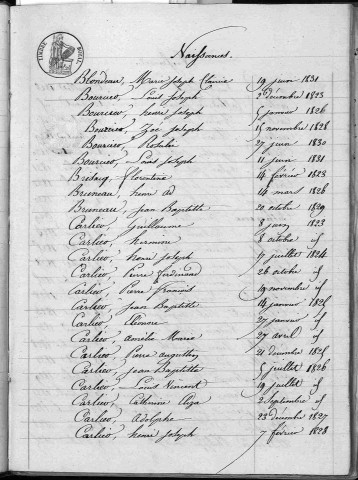 Naissances.
Blondeau, Marie Joseph 19 juin 1831
Bourcier, Louis Joseph 2 décembre 1823
Bourcier, henri Joseph 5 janvier 1826
Bourcier, Zoé Joseph 15 novembre 1828
Bourcier, 27 juin 1830
Bourcier, Louis Joseph 11 juin 1831
florentine 14 février 1823
Bruneau, henri 14 mars 1826
Bruneau, Jean Baptiste 20 octobre 1829
Carlier, Guillaume 8 1823
Carlier, hermine 8 octobre id
Carlier, henri Joseph 17 juillet 1824
Carlier, Pierre ferdinand 26 octobre id
Carlier, Pierre françois 19 novembre id
Carlier, Jean Baptiste 14 janvier 1825
Carlier, Eléonore 27 janvier id
Carlier, amélie 27 avril id
Carlier, Pierre augustin 21 décembre 1825
Carlier, Jean Baptiste 5 juillet 1826
Carlier, Louis Vincent 19 juillet id
Carlier, Catherine 2 Septembre id
Carlier, Adolphe 23 décembre 1827
Carlier, henri Joseph 7 février 1828